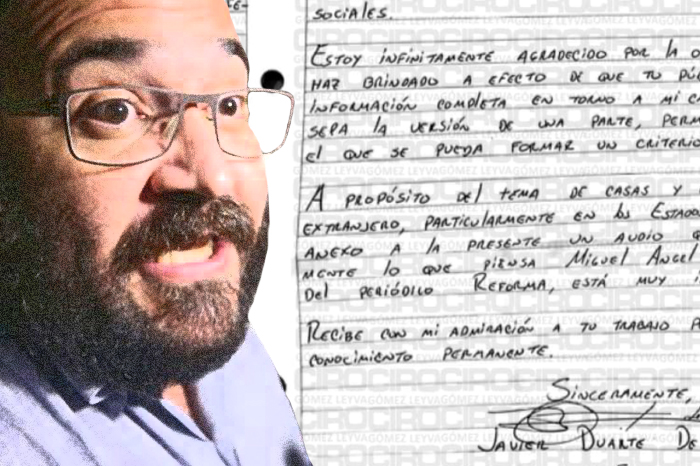 SOCIALES.
ESTOY INFINITAMENTE AGRADECIDO POR LA
HAZ BRINDADO A EFECTO DE QUE TU
INFORMACIÓN COMPLETA EN TORNO A MI
SEPA LA VERSIÓN DE UNA PARTE,
EL QUE SE PUEDA FORMAR UN CRITERIO
A PROPÓSITO DEL TEMA DE CASAS Y
EXTRANJERO, PARTICULARMENTE EN LOS
ANEXO A LA PRESENTE UN AUDIO
MENTE LO QUE PIENSA MIGUEL ANGEL
DEL PERIÓDICO REFORMA, ESTÁ MUY
RECIBE CON MI ADMIRACIÓN A TU TRABAJO
CONOCIMIENTO PERMANENTE.
SINCERAMENTE,
JAVIER DUARTE DE